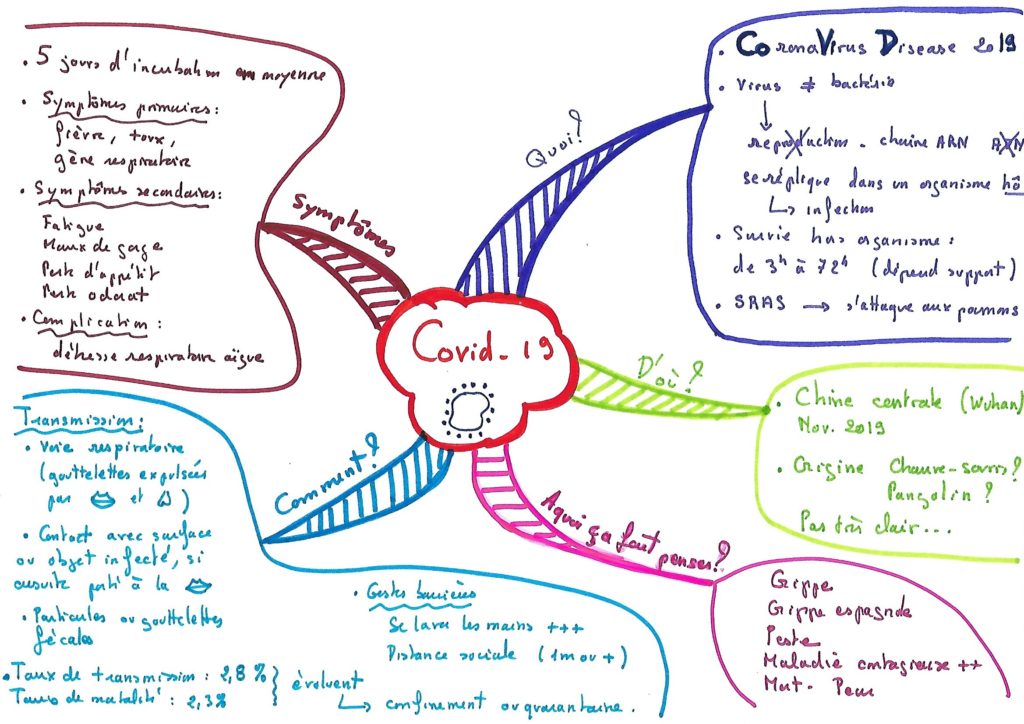 Covid-19
Quoi?
• CoronaVirus Disease 2019
• Virus ≠ bactérie
↓
reproduction. chaine ARN ADN
se réplique dans un organisme hô
↳ infection
• Survie hors organisme :
de 3h à 72h (dépend support)
• SRAS → s'attaque aux poumons
D'où?
• Chine centrale (Wuhan)
Nov. 2019
• Origine Chauve-souris?
Pangolin?
Pas très clair...
A quoi ça fait penser?
Grippe
Grippe espagnole
Peste
Maladie contagieuse ++
Mort. Peur
Comment?
Transmission:
• Voie respiratoire
(gouttelettes expulsées
par et )
• Contact avec surface
ou objet infecté, si
ensuite porté à la
• Particules ou gouttelettes
fécales
• Taux de transmission : 2,8 %
Taux de mortalité : 2,3%
évoluent
↳ confinement ou quarantaine.
• Gestes barrières
Se laver les mains +++
Distance sociale (1m ou +)
Symptômes
• 5 jours d'incubation en moyenne
• Symptômes primaires:
fièvre, toux,
gêne respiratoire
• Symptômes secondaires:
Fatigue
Maux de gorge
Perte d'appétit
Perte odorat
• Complication :
détresse respiratoire aïgue